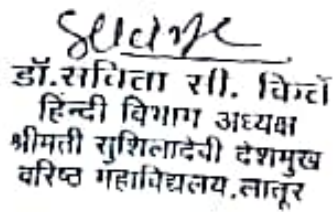 डॉ.सविता सी.
हिन्दी विभाग अध्यक्ष
श्रीमती सुशिलादेवी देशमुख
वरिष्ठ महाविद्यालय,लातूर